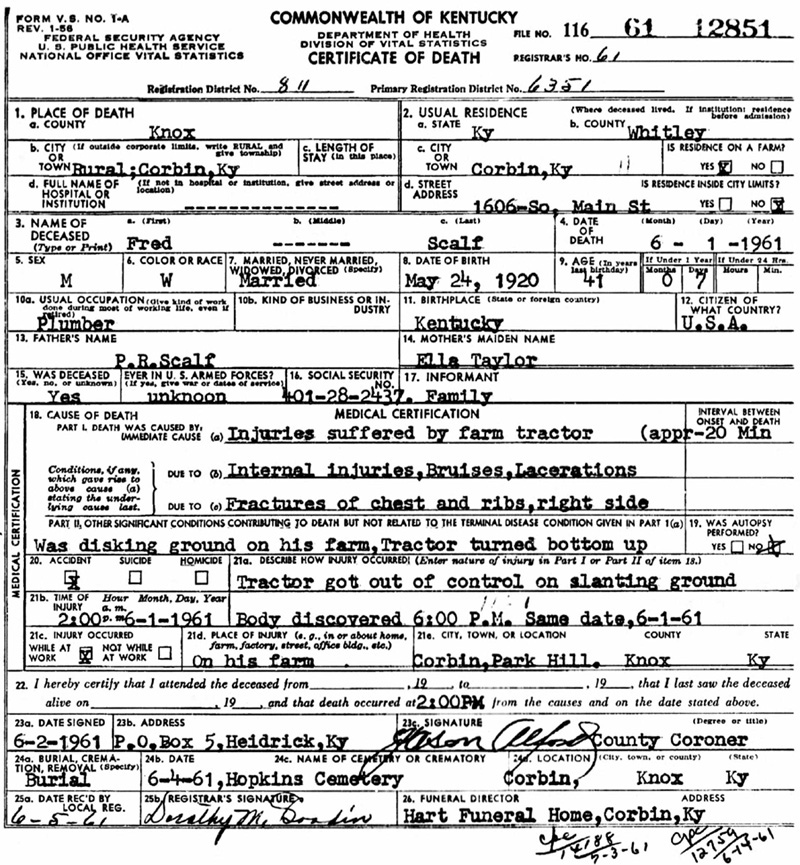 FORM V.S. NO. 1-A
REV. 1-56
FEDERAL SECURITY AGENCY
U. S. PUBLIC HEALTH SERVICE
NATIONAL OFFICE VITAL STATISTICS
COMMONWEALTH OF KENTUCKY
DEPARTMENT OF HEALTH
DIVISION OF VITAL STATISTICS
CERTIFICATE OF DEATH
FILE NO. 116 61 12851
REGISTRAR'S NO. 61
Registration District No. 811 Primary Registration District No. 6351
1. PLACE OF DEATH
a. COUNTY
Knox
2. USUAL RESIDENCE (Where deceased lived. If institution: residence before admission)
a. STATE Ky b. COUNTY Whitley
b. CITY (If outside corporate limits, write RURAL and give township)
OR
TOWN Rural;Corbin,Ky
c. LENGTH OF STAY (in this place)
c. CITY
OR
TOWN Corbin,Ky
IS RESIDENCE ON A FARM?
YES X NO
d. FULL NAME OF HOSPITAL OR INSTITUTION (If not in hospital or institution, give street address or location)
---------------
d. STREET ADDRESS 1606-So, Main St
IS RESIDENCE INSIDE CITY LIMITS?
YES NO X
3. NAME OF DECEASED (Type or Print)
a. (First) b. (Middle) c. (Last)
Fred ------- Scalf
4. DATE OF DEATH (Month) (Day) (Year)
6 - 1 -1961
5. SEX
M
6. COLOR OR RACE
W
7. MARRIED, NEVER MARRIED, WIDOWED, DIVORCED (Specify)
Married
8. DATE OF BIRTH
May 24, 1920
9. AGE (In years last birthday) 41
If Under 1 Year Months 0 Days 7
If Under 24 Hrs. Hours Min.
10a. USUAL OCCUPATION (Give kind of work done during most of working life, even if retired)
Plumber
10b. KIND OF BUSINESS OR INDUSTRY
11. BIRTHPLACE (State or foreign country)
Kentucky
12. CITIZEN OF WHAT COUNTRY?
U.S.A.
13. FATHER'S NAME
P.R.Scalf
14. MOTHER'S MAIDEN NAME
Ella Taylor
15. WAS DECEASED EVER IN U. S. ARMED FORCES?
(Yes, no, or unknown) (If yes, give war or dates of service)
Yes unknoon
16. SOCIAL SECURITY NO.
401-28-2437.
17. INFORMANT
Family
MEDICAL CERTIFICATION
18. CAUSE OF DEATH MEDICAL CERTIFICATION INTERVAL BETWEEN ONSET AND DEATH
PART I. DEATH WAS CAUSED BY:
IMMEDIATE CAUSE (a) Injuries suffered by farm tractor (appr-20 Min
Conditions, if any, which gave rise to above cause (a) stating the underlying cause last.
DUE TO (b) Internal injuries,Bruises,Lacerations
DUE TO (c) Fractures of chest and ribs,right side
PART II, OTHER SIGNIFICANT CONDITIONS CONTRIBUTING TO DEATH BUT NOT RELATED TO THE TERMINAL DISEASE CONDITION GIVEN IN PART 1(a)
Was disking ground on his farm,Tractor turned bottom up
19. WAS AUTOPSY PERFORMED?
YES NO X
20. ACCIDENT SUICIDE HOMICIDE
X
21a. DESCRIBE HOW INJURY OCCURRED. (Enter nature of injury in Part I or Part II of item 18.)
Tractor got out of control on slanting ground
21b. TIME OF INJURY Hour Month, Day, Year
a. m.
2:00 p. m. 6-1-1961
Body discovered 6:00 P.M. Same date,6-1-61
21c. INJURY OCCURRED
WHILE AT WORK X NOT WHILE AT WORK
21d. PLACE OF INJURY (e. g., in or about home, farm, factory, street, office bldg., etc.)
On his farm
21e. CITY, TOWN, OR LOCATION COUNTY STATE
Corbin,Park Hill. Knox Ky
22. I hereby certify that I attended the deceased from , 19 to , 19 , that I last saw the deceased
alive on , 19 , and that death occurred at 2:00PM from the causes and on the date stated above.
23a. DATE SIGNED
6-2-1961
23b. ADDRESS
P.O.Box 5,Heidrick,Ky
23c. SIGNATURE (Degree or title)
Jason Alford County Coroner
24a. BURIAL, CREMATION, REMOVAL (Specify)
Burial
24b. DATE 24c. NAME OF CEMETERY OR CREMATORY
6-4-61,Hopkins Cemetery
24d. LOCATION (City, town, or county) (State)
Corbin, Knox Ky
25a. DATE REC'D BY LOCAL REG.
6-5-61
25b. REGISTRAR'S SIGNATURE
Dorothy M.
26. FUNERAL DIRECTOR ADDRESS
Hart Funeral Home,Corbin,Ky
14188
7-3-61
12759
6-14-61